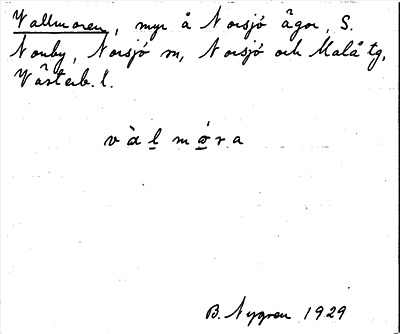 Vallmoren, myr å Norsjö ägor, S.
Norrby, Norsjö sn, Norsjö och Malå tg,
Västerb. l.
vàl móra
B. Nygren 1929